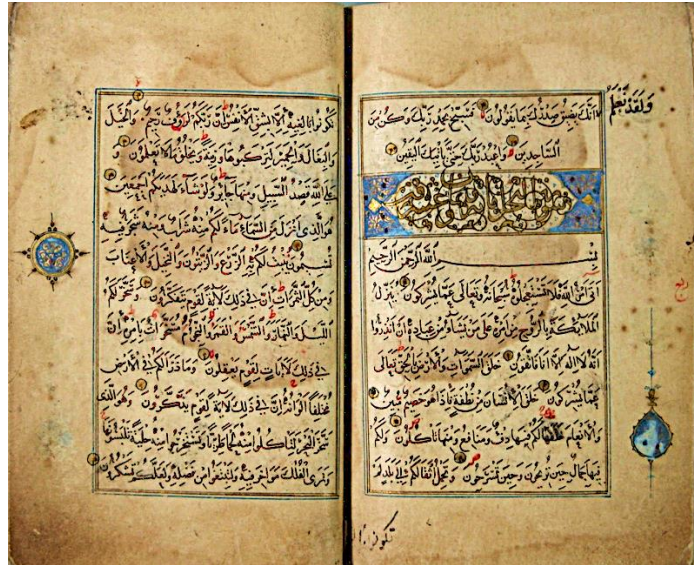 وَلَقَدْ نَعْلَمُ
اَنَّكَ يَضِيقُ صَدْرُكَ بِمَا يَقُولُونَ فَسَبِّحْ بِحَمْدِ رَبِّكَ وَكُنْ مِنَ
السَّاجِدِينَ وَاعْبُدْ رَبَّكَ حَتّٰى يَاْتِيَكَ الْيَقِينُ
سورة النحل
بِسْمِ اللّٰهِ الرَّحْمٰنِ الرَّحِيمِ
اَتٰى اَمْرُ اللّٰهِ فَلَا تَسْتَعْجِلُوهُ سُبْحَانَهُ وَتَعَالٰى عَمَّا يُشْرِكُونَ يُنَزِّلُ
الْمَلَائِكَةَ بِالرُّوحِ مِنْ اَمْرِهِ عَلٰى مَنْ يَشَاءُ مِنْ عِبَادِهِ اَنْ اَنْذِرُوا
اَنَّهُ لَا اِلٰهَ اِلَّا اَنَا فَاتَّقُونِ خَلَقَ السَّمٰوَاتِ وَالْاَرْضَ بِالْحَقِّ تَعَالٰى
عَمَّا يُشْرِكُونَ خَلَقَ الْاِنْسَانَ مِنْ نُطْفَةٍ فَاِذَا هُوَ خَصِيمٌ مُبِينٌ
وَالْاَنْعَامَ خَلَقَهَا لَكُمْ فِيهَا دِفْءٌ وَمَنَافِعُ وَمِنْهَا تَاْكُلُونَ وَلَكُمْ
فِيهَا جَمَالٌ حِينَ تُرِيحُونَ وَحِينَ تَسْرَحُونَ وَتَحْمِلُ اَثْقَالَكُمْ اِلٰى بَلَدٍ لَمْ
تكونوا
تَكُونُوا بَالِغِيهِ اِلَّا بِشِقِّ الْاَنْفُسِ اِنَّ رَبَّكُمْ لَرَؤُفٌ رَحِيمٌ وَالْخَيْلَ
وَالْبِغَالَ وَالْحَمِيرَ لِتَرْكَبُوهَا وَزِينَةً وَيَخْلُقُ مَا لَا تَعْلَمُونَ وَ
عَلَى اللّٰهِ قَصْدُ السَّبِيلِ وَمِنْهَا جَائِرٌ وَلَوْ شَاءَ لَهَدٰيكُمْ اَجْمَعِينَ
هُوَ الَّذِي اَنْزَلَ مِنَ السَّمَاءِ مَاءً لَكُمْ مِنْهُ شَرَابٌ وَمِنْهُ شَجَرٌ فِيهِ
تُسِيمُونَ يُنْبِتُ لَكُمْ بِهِ الزَّرْعَ وَالزَّيْتُونَ وَالنَّخِيلَ وَالْاَعْنَابَ
وَمِنْ كُلِّ الثَّمَرَاتِ اِنَّ فِي ذٰلِكَ لَاٰيَةً لِقَوْمٍ يَتَفَكَّرُونَ وَسَخَّرَ لَكُمُ
اللَّيْلَ وَالنَّهَارَ وَالشَّمْسَ وَالْقَمَرَ وَالنُّجُومُ مُسَخَّرَاتٌ بِاَمْرِهِ اِنَّ
فِي ذٰلِكَ لَاٰيَاتٍ لِقَوْمٍ يَعْقِلُونَ وَمَا ذَرَاَ لَكُمْ فِي الْاَرْضِ
مُخْتَلِفًا اَلْوَانُهُ اِنَّ فِي ذٰلِكَ لَاٰيَةً لِقَوْمٍ يَذَّكَّرُونَ وَهُوَ الَّذِي
سَخَّرَ الْبَحْرَ لِتَاْكُلُوا مِنْهُ لَحْمًا طَرِيًّا وَتَسْتَخْرِجُوا مِنْهُ حِلْيَةً تَلْبَسُونَهَا
وَتَرَى الْفُلْكَ مَوَاخِرَ فِيهِ وَلِتَبْتَغُوا مِنْ فَضْلِهِ وَلَعَلَّكُمْ تَشْكُرُونَ